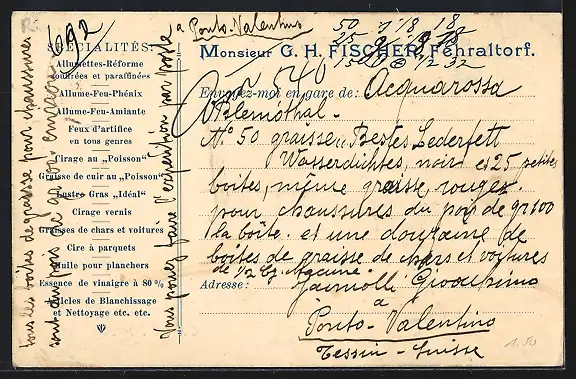 SPÉCIALITÉS:
Allumettes-Réforme
soufrées et paraffinées
Allume-Feu-Phénix
Allume-Feu-Amiante
Feux d'artifice
en tous genres
Cirage au „Poisson"
Graisse de cuir au „Poisson"
Lustro Gras „Idéal"
Cirage vernis
Graisses de chars et voitures
Cire à parquets
Huile pour planchers
Essence de vinaigre à 80 %
Articles de Blanchissage
et Nettoyage etc. etc.
692
tous les boîtes de graisse pour chaussures
sont
Vous pouvez faire l'expédition par poste
à Ponto-Valentino
50 1/8 18
25
Monsieur G. H. FISCHER, Fehraltorf.
Envoyez-moi en gare de: Acquarossa
Blemothal.
N° 50 graisse „Bestes Lederfett
Wasserdichtes, noir et 25 petites
boites, même graisse rouges.
pour chaussures du poix de gr 100
la boite. et une douzaine de
boites de graisse de chars et voitures
de 1/2 Eg.
Adresse: Gioachimo
a
Ponto-Valentino
Tessin - Suisse
1.50